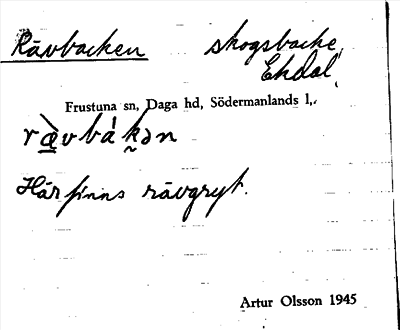 Rävbacken skogsbacke,
Ekdal,
Frustuna sn, Daga hd, Södermanlands l,.
ræ̀vbák̬ən
Här finns rävgryt.
Artur Olsson 1945